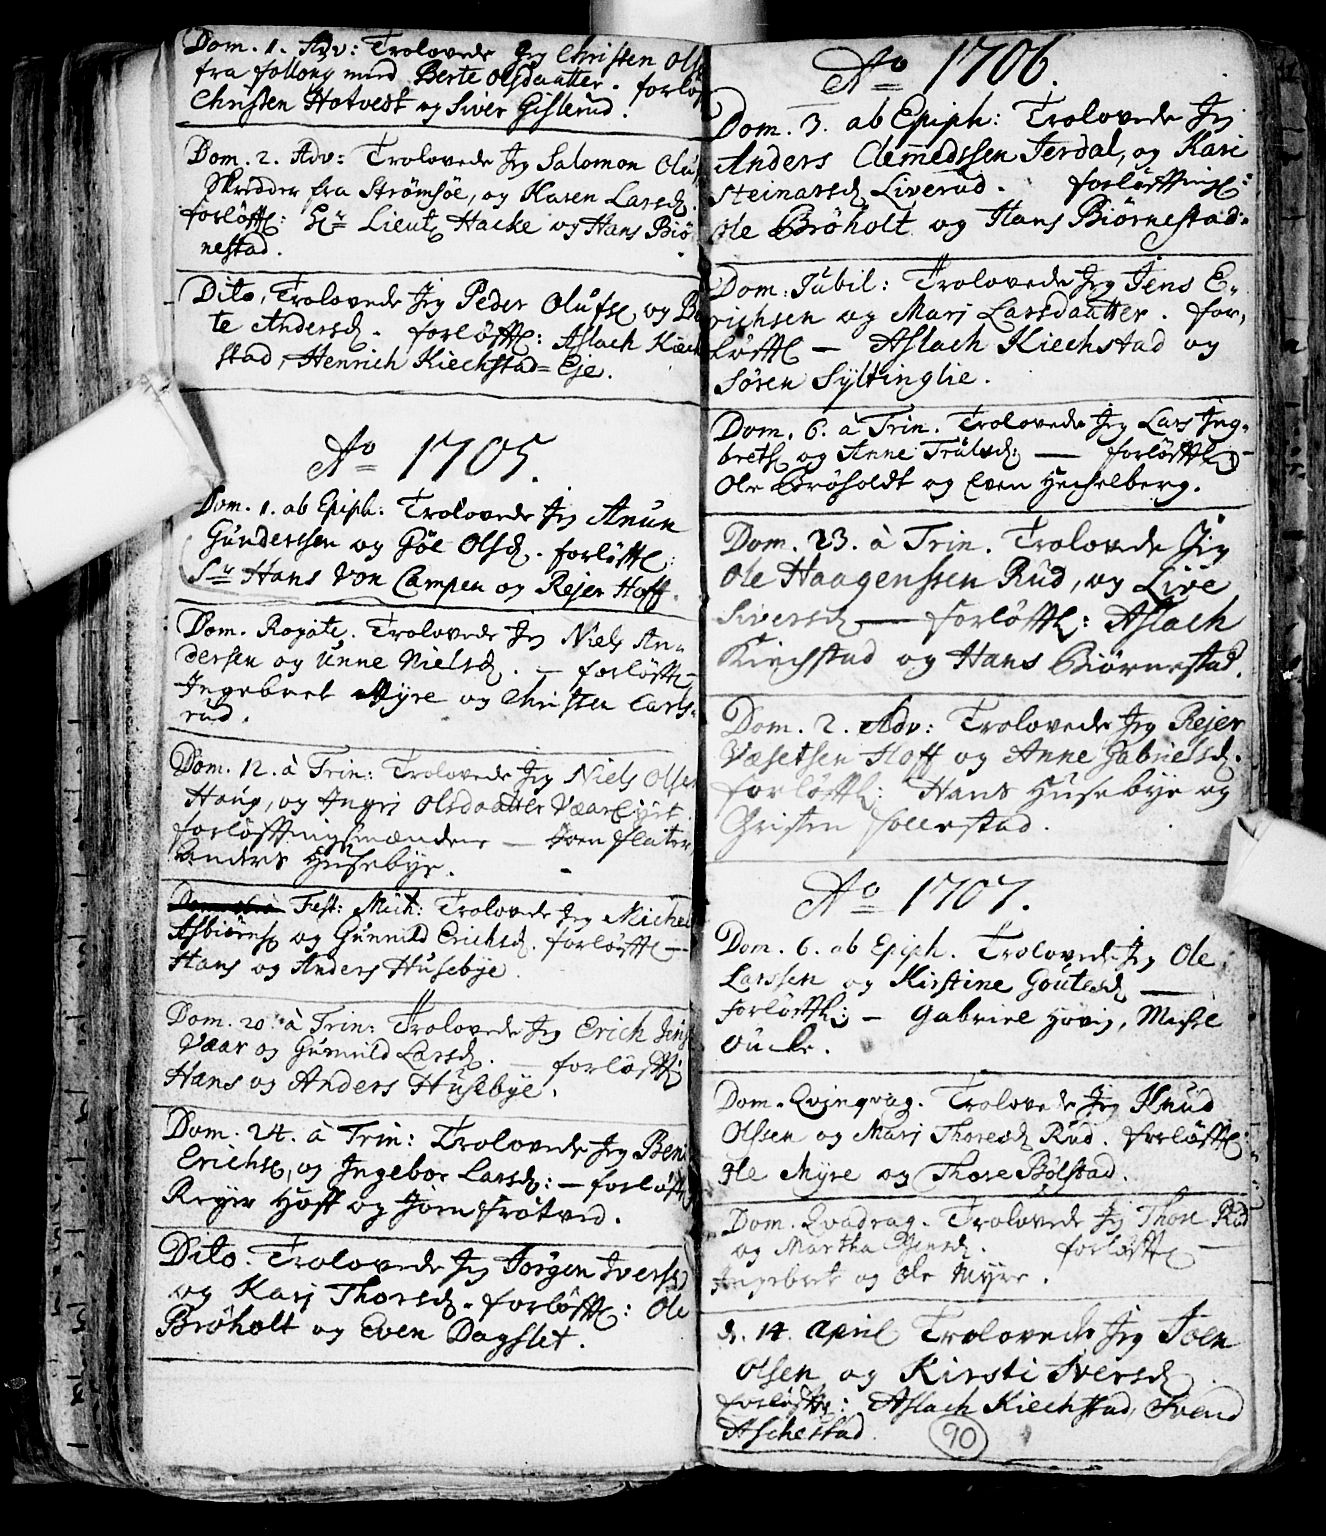 Dom. 1. Adv: Trolovede Jeg Christen Ols
fra follong med Berte Olsdaatter. forløs
Christen Hotvedt og Siver Gislerud.
Dom. 2. Adv: Trolovede Jeg Salomon Oluf
Skredder fra Strømsøe, og Karen Larsd.
forløftt: Hr Lieut Hacke og Hans Biø
nestad.
Dito, Trolovede Jeg Peder Olufs og Be
te Andersd. forløftt: Aslach Kiech
stad, Henrich Kiechstad-Eje.
Ao 1705.
Dom. 1. ab Epiph: Trolovede Jeg Anun
Gunderssen og Gøe Olsd. forløftt:
Sr Hans Von Campen og Rejer Hoff.
Dom. Rogate. Trolovede Jeg Niels An-
dersen og Anne Nielsd. — forløftt
Ingebret Myre og Christen Carls-
rud.
Dom. 12. à Trin: Trolovede Jeg Niels Olsen
Haug, og Ingri Olsdaatter
forløfttningsmændene — Joen flater,
Anders Husebye.
Fest: Mich: Trolovede Jeg Michel
Asbiørns og Gunnild Erichsd. forløftt —
Hans og Anders Husebye.
Dom. 20. à Trin: Trolovede Jeg Erich Jens
Vaar og Gunnild Larsd. — forløftt
Hans og Anders Husebye.
Dom. 24. à Trin: Trolovede Jeg Beni
Erichs, og Ingebor Larsd: — forløftt
Reyer Hoff og Jørn Frøtved.
Dito. Trolovede Jeg Jørgen Ivers
og Karj Thorsd. forløftt: Ole
Brøholt og Even Dagslet.
Ao 1706.
Dom. 3. ab Epiph: Trolovede Jeg
Anders Clemedssen Jerdal, og Kari
Steinarsd Liverud. forløftning:
Ole Brøholt og Hans Biørnestad.
Dom: Jubil: Trolovede Jeg Jens E-
richsen og Marj Larsdaatter. for-
løftt — Aslach Kiechstad og
Søren Syltinglie.
Dom. 6. à Trin. Trolovede Jeg Lars Ing-
brets og Anne Trulsd: — forløftt
Ole Brøholdt og Even Hechelberg.
Dom. 23. à Trin. Trolovede Jeg
Ole Haagenssen Rud, og Live
Siversd — forløftt: Aslach
Kiechstad og Hans Biørnestad.
Dom. 2. Adv: Trolovede Jeg Rejer
Væsetsen Hoff og Anne Gabrielsd.
forløftt: Hans Husebye og
Christen follestad.
Ao 1707.
Dom. 6. ab Epiph. Trolovede Jeg Ole
Larssen og Kirstine Goutesd —
forløftt: — Gabriel Høvig,
Dom. Qvinqvag. Trolovede Jeg Knud
Olsen og Marj Thoresd Rud. forløftt:
Ole Myre og Thore Bølstad.
Dom. Qvadrag. Trolovede Jeg Thore Rud
og Martha Jensd. forløftt —
Ingebret og Ole Myre.
d. 14. April Trolovede Jeg Joen
Olsen og Kirsti Iversd
forløftt: Aslach Kiechstad, Svend
Aschestad.
90